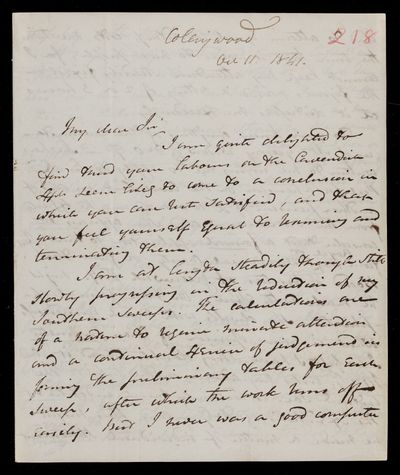 Collingwood
218
Oct 11 1841.
My dear Sir
I am quite delighted to
find that your labours on the Cavendish
Expts seem likely to come to a conclusion in
which you can rest satisfied, and that
you feel yourself equal to resuming and
terminating them.
I am at length steadily though still
slowly progressing in the reduction of my
Southern Sweeps. The calculations are
of a nature to require minute attention
and a continual of judgement in
forming the preliminary tables for each
sweep, after which the work runs off
easily. But I never was a good computer